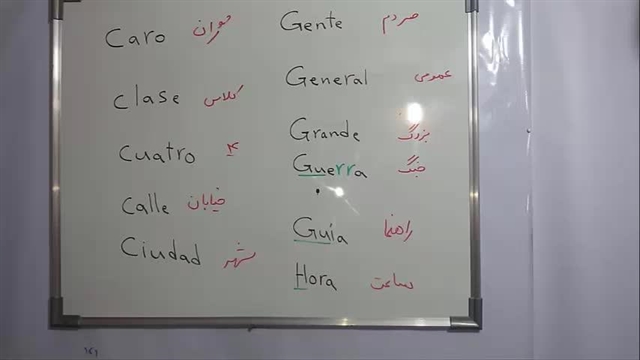 Caro گران
Clase کلاس
Cuatro ۴
Calle خیابان
Ciudad شهر
Gente مردم
General عمومی
Grande بزرگ
Guerra جنگ
Guia راهنما
Hora ساعت